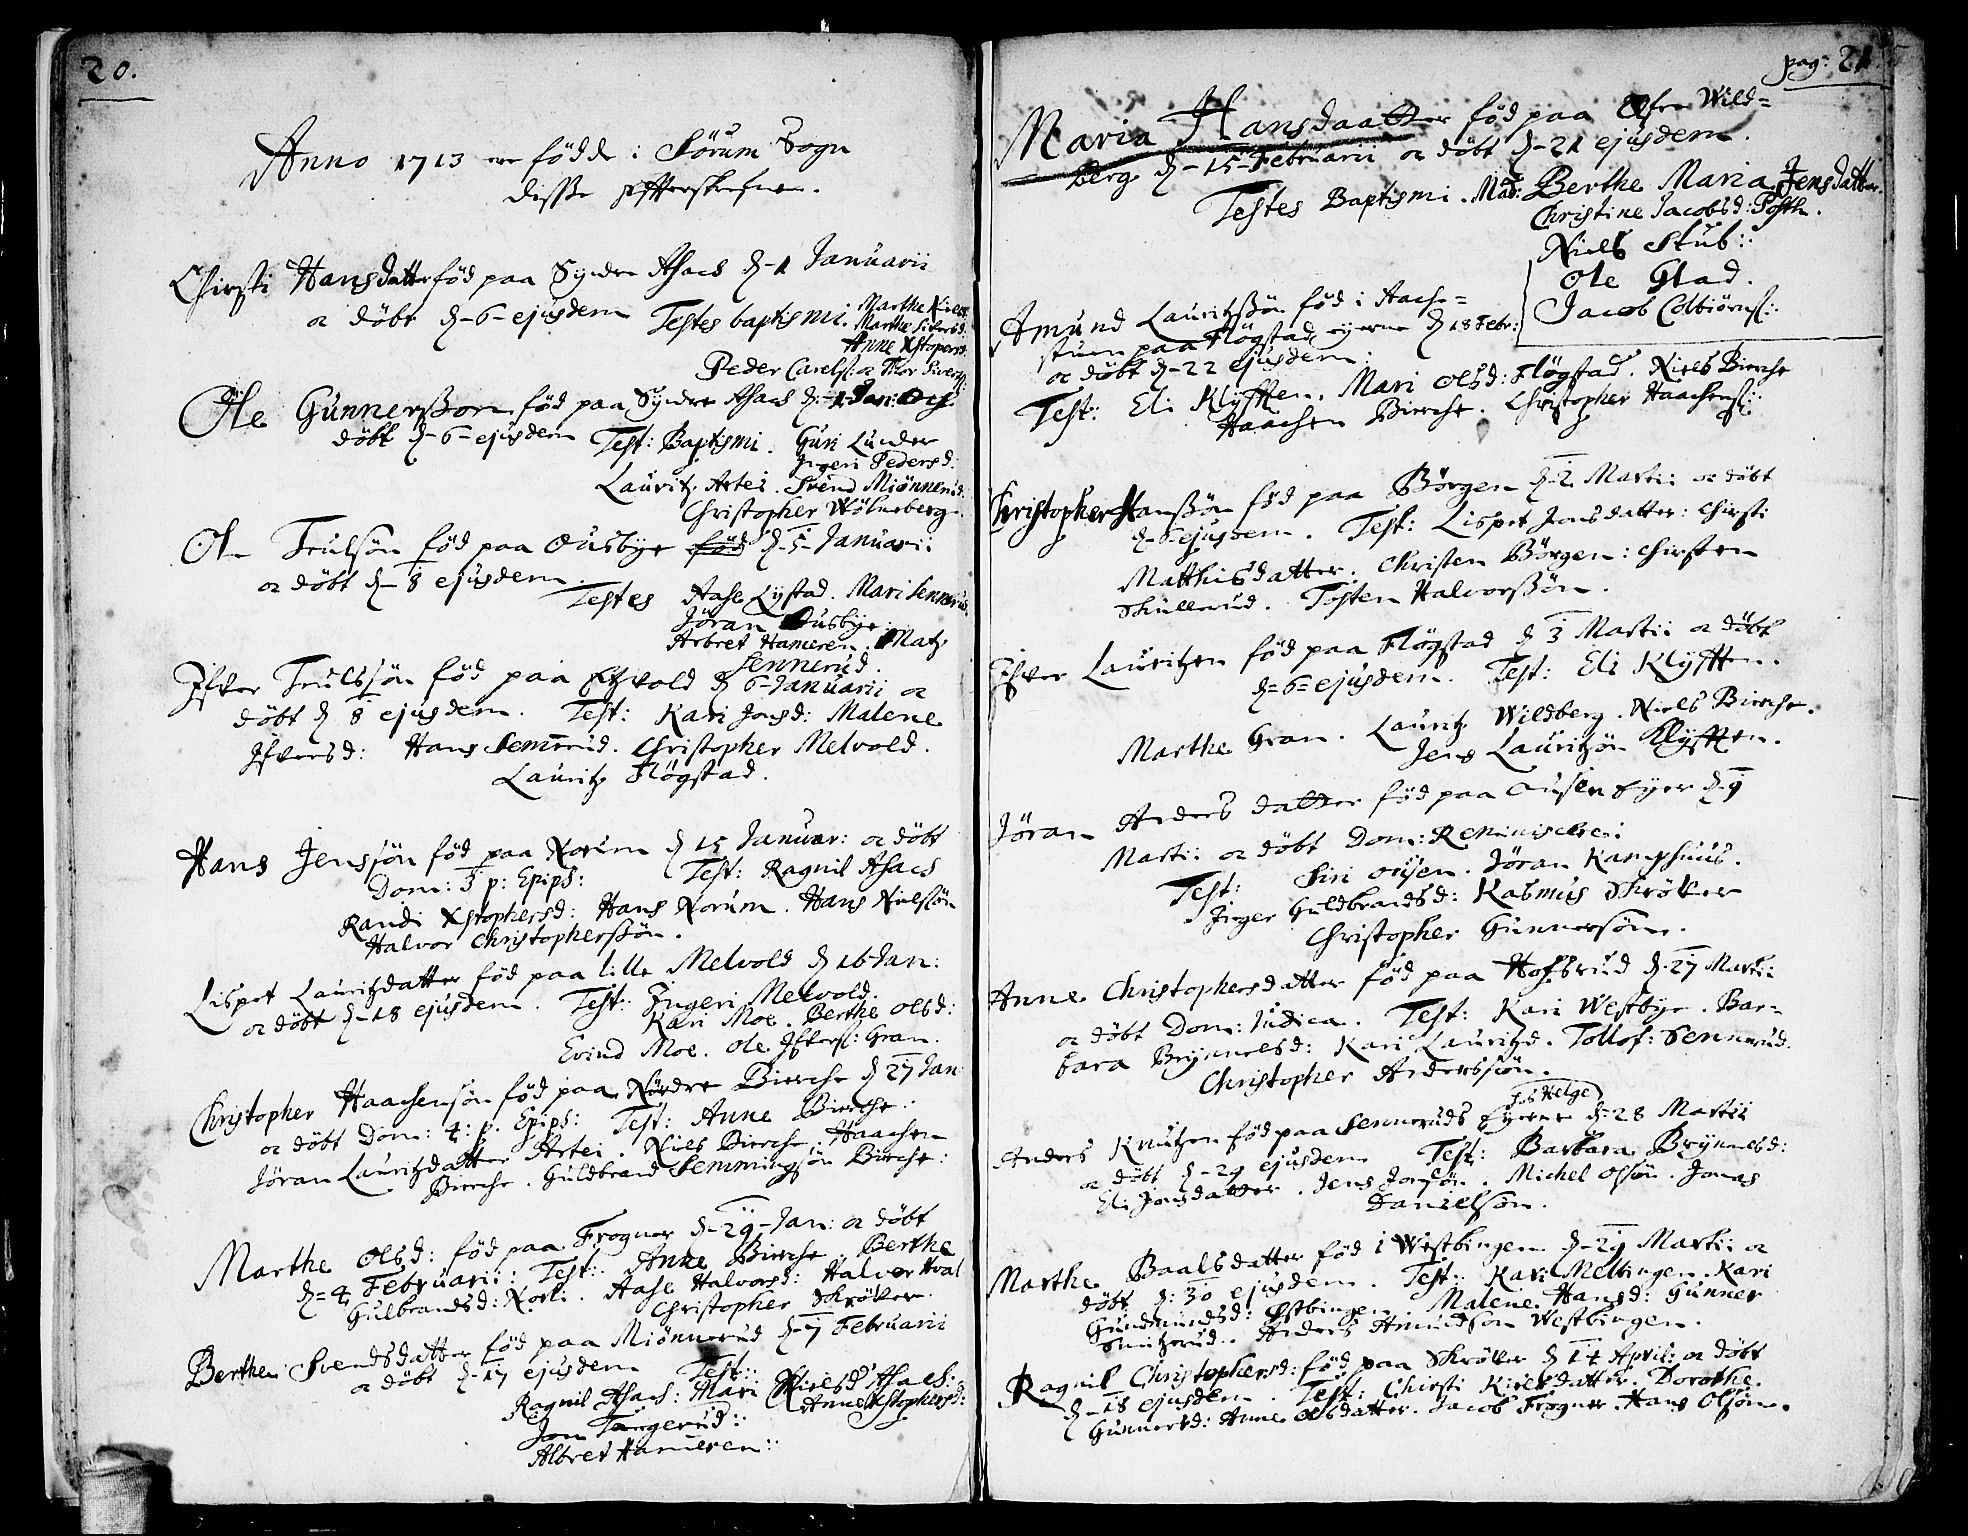 20.
Anno 1713 ere födde i Sörum Sogn
disse effterskrefne.
Chirsti Hansdatter föd paa Syndre Asach d. 1 Januarii
oc döbt d. 6 ejusdem Testes baptismi. Marthe Niels
Marthe Siversd:
Anne Xstophersd:
Peder Carelss: oc Thor Siverss:
Ole Gunnersson föd paa Syndre Asach d. 1 Jan: Och
döbt d. 6 ejusdem Test: Baptismi. Guri Lunder
Ingeri Pedersd:
Lauritz Artei. Svend Miönnerud.
Christopher Wölneberg.
Ole Trulsön föd paa Ousbye d. 5 Januarii
oc döbt d. 8 ejusdem.
Testes Aase Lystad. Mari Sennerud
Jöran Ousbye.
Arbret Hameren. Matz
Sennerud.
Ifver Trulssön föd paa Egvold d. 6 Januarii oc
döbt d. 8 ejusdem. Test: Kari Jonsd: Malene
Ifversd: Hans Sennerud. Christopher Melvold.
Lauritz Flögstad.
Hans Jenssön föd paa Norum d. 15 Januar: oc döbt
Dom: 3 p: Epiph: Test: Ragnil Asach
Randi Xstophersd: Hans Norum. Hans Nielsön
Halvor Christopherssön.
Lispet Lauritzdatter föd paa lille Melvold d. 16 Jan:
oc döbt d. 18 ejusdem. Test: Ingeri Melvold.
Kari Moe. Berthe Olsd:
Evind Moe. Ole Ifverss: Gran.
Christopher Haachensön föd paa Nördre Bierche d. 27 Jan
oc döbt Dom: 4: p. Epiph: Test: Anne Bierche:
Jöran Lauritzdatter Artei. Niels Bierche. Haachen
Bierche. Guldbrand Semmingsön Bierche:
Marthe Olsd: föd paa Frogner d. 29 Jan: oc döbt
d. 4 Februarii: Test: Anne Bierche. Berthe
Gulbrandsd: Norli. Aase Halvorsd: Halvor Hval
Christopher Skröver.
Berthe Svendsdatter föd paa Miönnerud d. 7 Februarii
oc döbt d. 17 ejusdem Test:
Ragnil Asach: Mari Nielsd Asach:
Anne Xstophersd:
Jon Tangerud:
Albret Hameren:
pag: 21
Maria Hansdaatter föd paa Öfre Wild=
berg d. 15 Februarii oc döbt d. 21 ejusdem.
Testes Baptismi. Mad: Berthe Maria Jensdatter.
Christine Jacobsd: Posth.
Niels Stub:
Ole Glad.
Jacob Colbiörnss:
Amund Lauritzsön föd i Aach=
stuen paa Flögstad eyerne d. 18 Febr:
oc döbt d. 22 ejusdem:
Test: Eli Klyfften. Mari Olsd: Flögstad. Niels Bierche
Haachen Bierche. Christopher Haachenss:
Christopher Hanssön föd paa Börgen d. 2 Martii oc döbt
d. 6 ejusdem. Test: Lispet Jonsdatter: Chirsti
Matthisdatter. Christen Börgen: Chirsten
Skullerud. Tosten Halvorssön.
Ifver Lauritzen föd paa Flögstad d. 3 Martii oc döbt
d. 6 ejusdem. Test: Eli Klyfften.
Marthe Gran. Lauritz Wildberg. Niels Bierche.
Jens Lauritzön Klyfften.
Jöran Anders datter föd paa Ousen Eyer d. 9
Martii oc döbt Dom: Reminiscere:
Test: Siri Ousen. Jöran Kamphuus.
Inger Guldbrandsd: Rasmus Skröver
Christopher Gunnersön.
Anne Christophersdatter föd paa Hofsrud d. 27 Martii
oc döbt Dom: Judica. Test: Kari Westbye. Bar-
bara Brynnelsd: Kari Lauritzd. Tollof: Sennerud.
Christopher Anderssön.
hos Helge
Anders Knutzen föd paa Senneruds Eyerne d. 28 Martii
oc döbt d. 29 ejusdem Test: Barbara Brynnelsd:
Eli Jonsdatter. Jens Jonsön. Michel Olsön. Jonas
Danielsön.
Marthe Baalsdatter föd i Westbingen d. 29 Martii oc
döbt d: 30 ejusdem. Test: Kari Melbingen. Kari
Gundmundsd: Östbingen. Malene Hansd: Gunner
Smitzrud. Anders Amundson Westbingen.
Ragnil Christophersd: föd paa Skröver d. 14 April: oc döbt
d. 18 ejusdem. Test: Chirsti Nielsdatter. Dorothe
Gunnersd: Anne Olsdatter. Jacob Frogner. Hans Olsön.